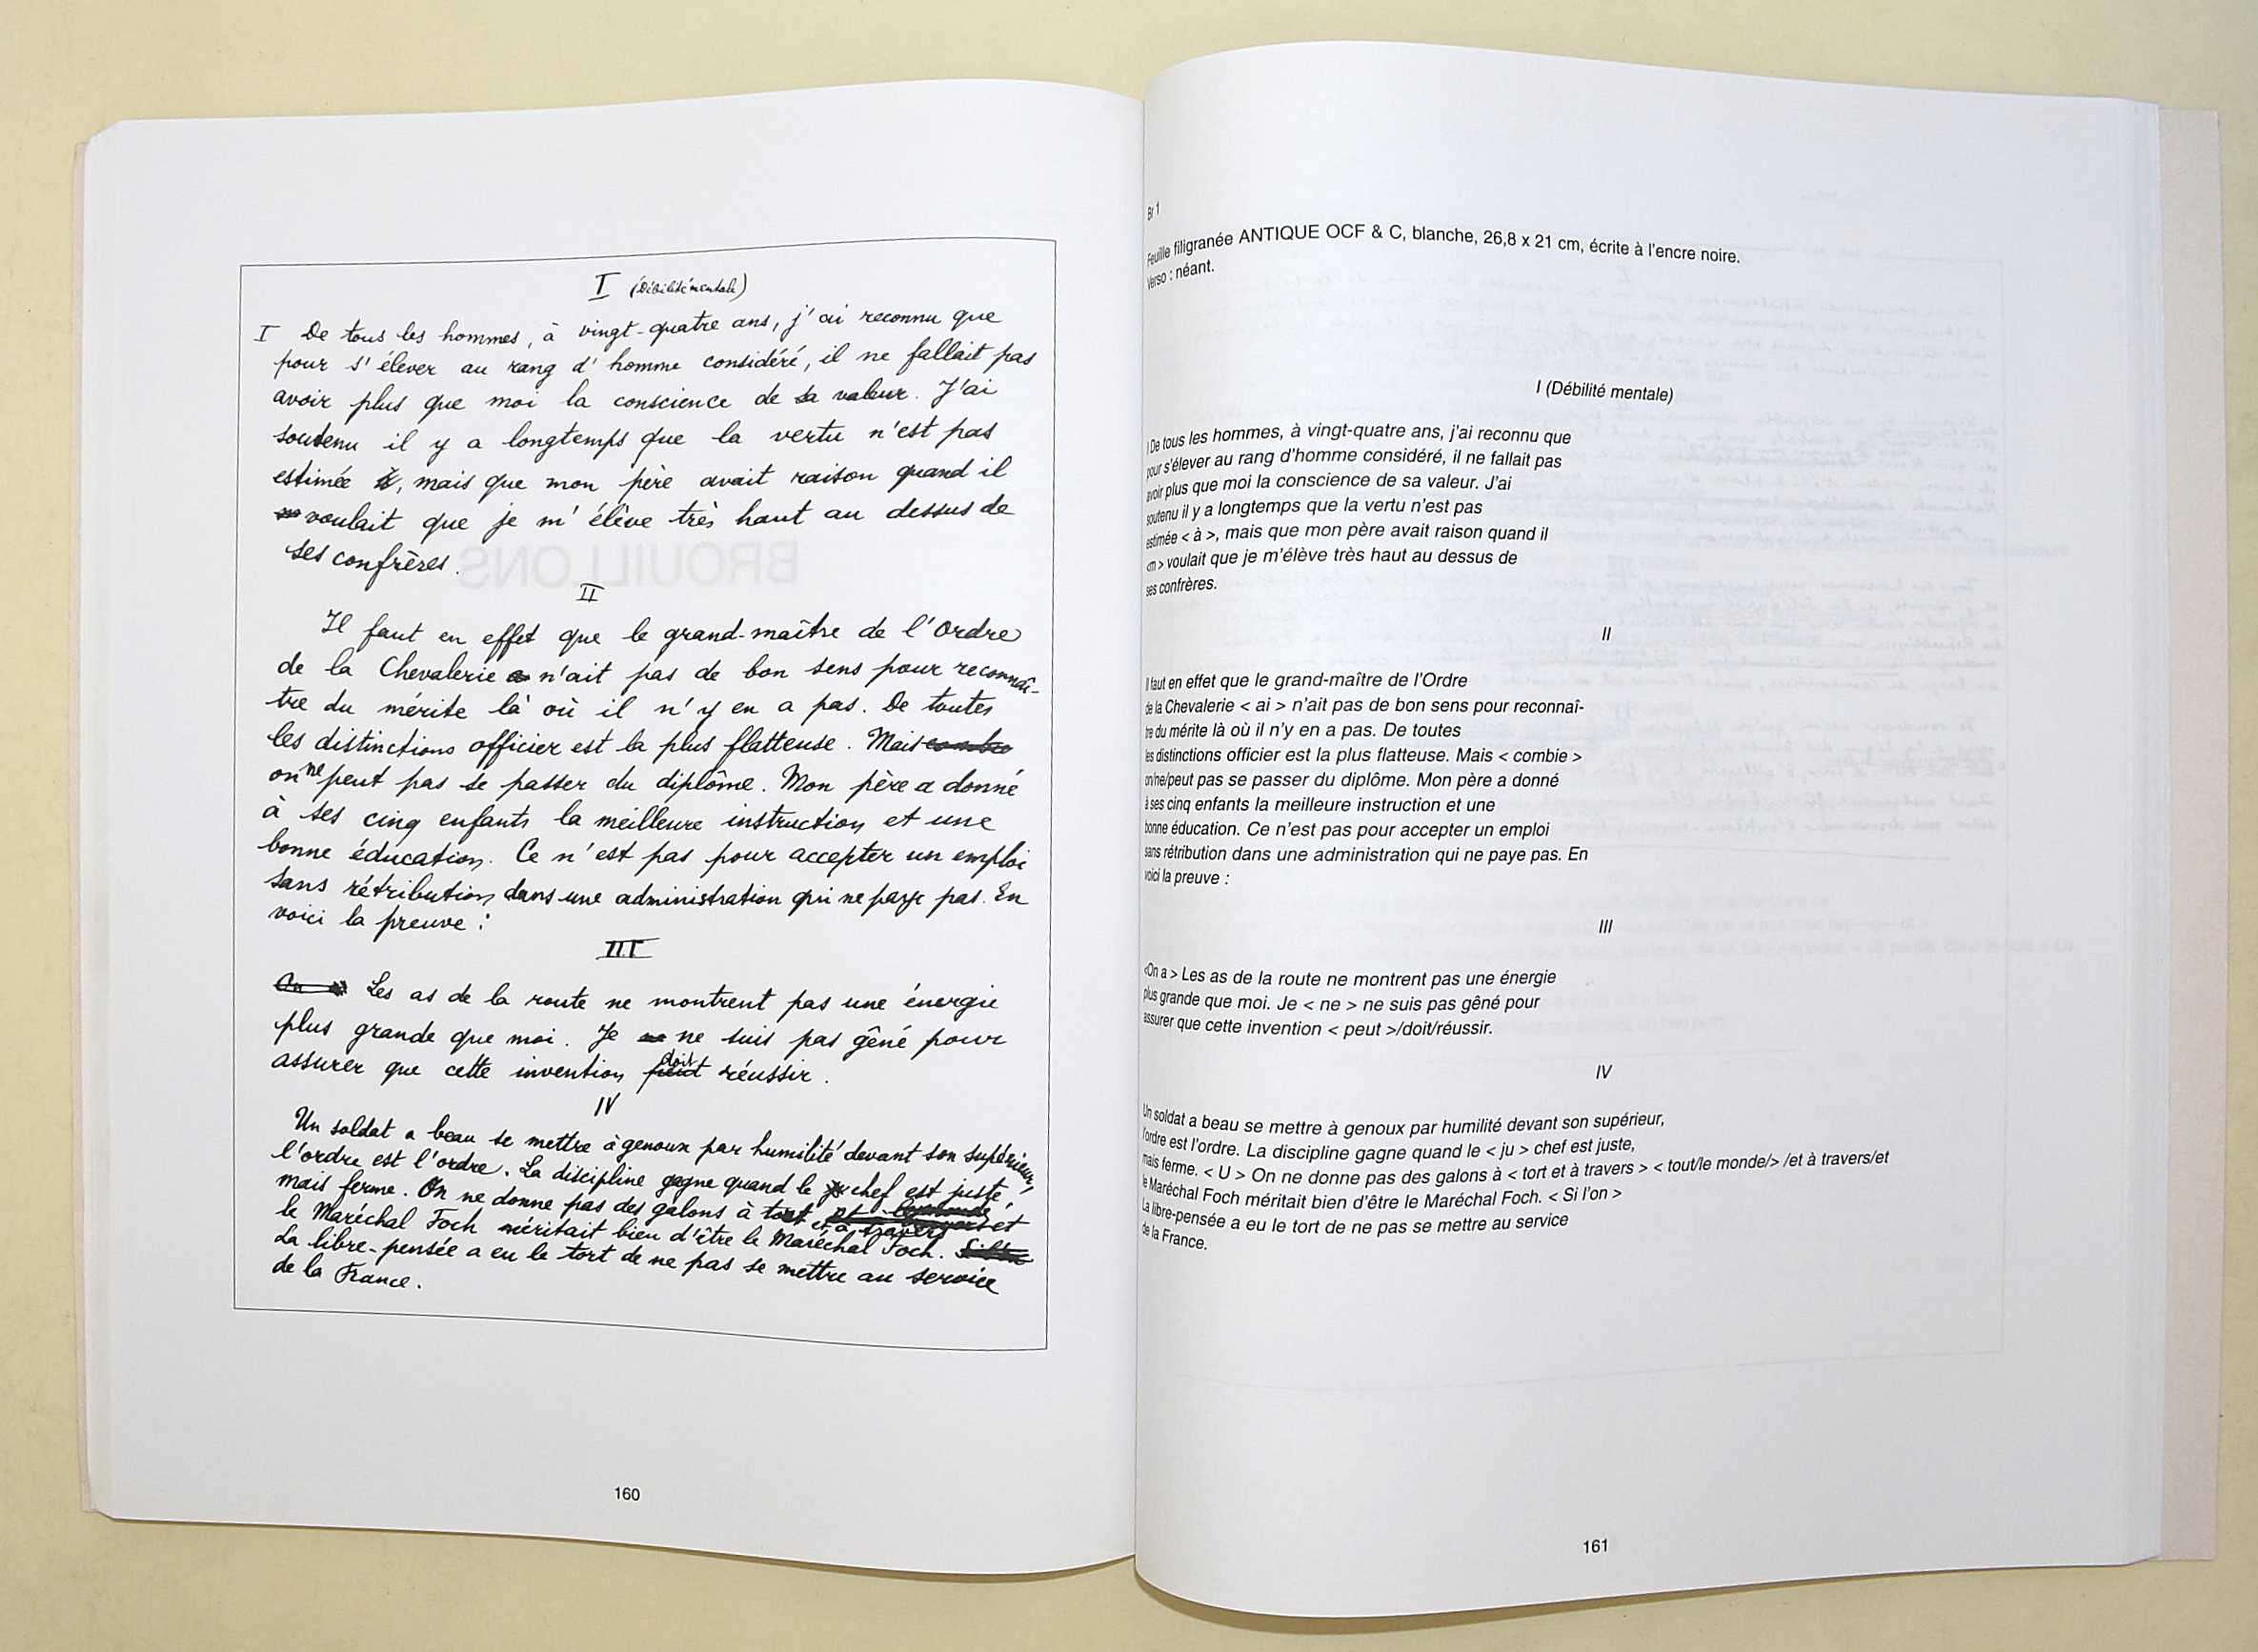 I (Débilité mentale)
I De tous les hommes, à vingt-quatre ans, j'ai reconnu que
pour s'élever au rang d'homme considéré, il ne fallait pas
avoir plus que moi la conscience de sa valeur. J'ai
soutenu il y a longtemps que la vertu n'est pas
estimée à, mais que mon père avait raison quand il
m voulait que je m'élève très haut au dessus de
ses confrères.
II
Il faut en effet que le grand-maître de l'Ordre
de la Chevalerie n'ait pas de bon sens pour reconnaî-
tre du mérite là où il n'y en a pas. De toutes
les distinctions officier est la plus flatteuse. Mais combie
on ne peut pas se passer du diplôme. Mon père a donné
à ses cinq enfants la meilleure instruction et une
bonne éducation. Ce n'est pas pour accepter un emploi
sans rétribution dans une administration qui ne paye pas. En
voici la preuve :
III
On a Les as de la route ne montrent pas une énergie
plus grande que moi. Je ne ne suis pas gêné pour
assurer que cette invention peut doit réussir.
IV
Un soldat a beau se mettre à genoux par humilité devant son supérieur,
l'ordre est l'ordre. La discipline gagne quand le ju chef est juste,
mais ferme. On ne donne pas des galons à tort et à travers et
le Maréchal Foch méritait bien d'être le Maréchal Foch. Si l'on
La libre-pensée a eu le tort de ne pas se mettre au service
de la France.
160
Br 1
Feuille filigranée ANTIQUE OCF & C, blanche, 26,8 x 21 cm, écrite à l'encre noire.
Verso : néant.
I (Débilité mentale)
I De tous les hommes, à vingt-quatre ans, j'ai reconnu que
pour s'élever au rang d'homme considéré, il ne fallait pas
avoir plus que moi la conscience de sa valeur. J'ai
soutenu il y a longtemps que la vertu n'est pas
estimée < à >, mais que mon père avait raison quand il
<m > voulait que je m'élève très haut au dessus de
ses confrères.
II
Il faut en effet que le grand-maître de l'Ordre
de la Chevalerie < ai > n'ait pas de bon sens pour reconnaî-
tre du mérite là où il n'y en a pas. De toutes
les distinctions officier est la plus flatteuse. Mais < combie >
on/ne/peut pas se passer du diplôme. Mon père a donné
à ses cinq enfants la meilleure instruction et une
bonne éducation. Ce n'est pas pour accepter un emploi
sans rétribution dans une administration qui ne paye pas. En
voici la preuve :
III
<On a > Les as de la route ne montrent pas une énergie
plus grande que moi. Je < ne > ne suis pas gêné pour
assurer que cette invention < peut >/doit/réussir.
IV
Un soldat a beau se mettre à genoux par humilité devant son supérieur,
l'ordre est l'ordre. La discipline gagne quand le < ju > chef est juste,
mais ferme. < U > On ne donne pas des galons à < tort et à travers > < tout/le monde/> /et à travers/et
le Maréchal Foch méritait bien d'être le Maréchal Foch. < Si l'on >
La libre-pensée a eu le tort de ne pas se mettre au service
de la France.
161